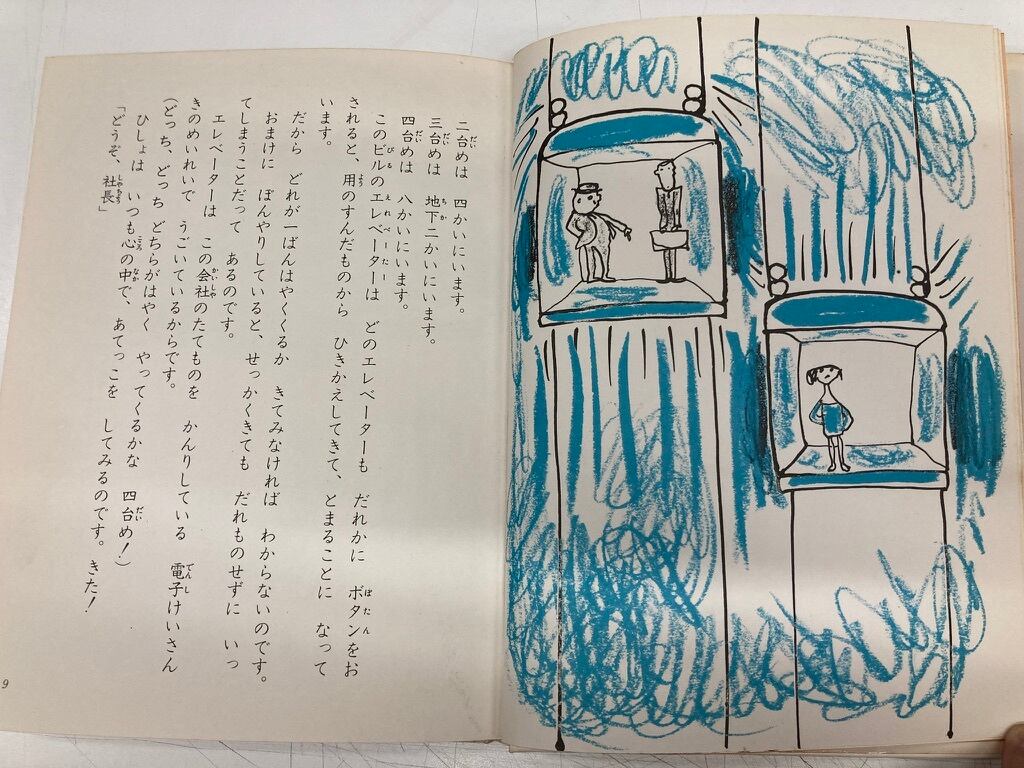 二台めは　四かいにいます。
三台めは　地下二かいにいます。
四台めは　八かいにいます。
このビルのエレベーターは　どのエレベーターも　だれかに　ボタンをお
されると、用のすんだものから　ひきかえしてきて、とまることに　なって
います。
だから　どれが一ばんはやくくるか　きてみなければ　わからないのです。
おまけに　ぼんやりしていると、せっかくきても　だれものせずに　いっ
てしまうことだって　あるのです。
エレベーターは　この会社のたてものを　かんりしている　電子けいさん
きのめいれいで　うごいているからです。
（どっち、どっち　どちらがはやく　やってくるかな　四台め！）
ひしょは　いつも心の中で、あてっこを　してみるのです。きた！
「どうぞ、社長」
9